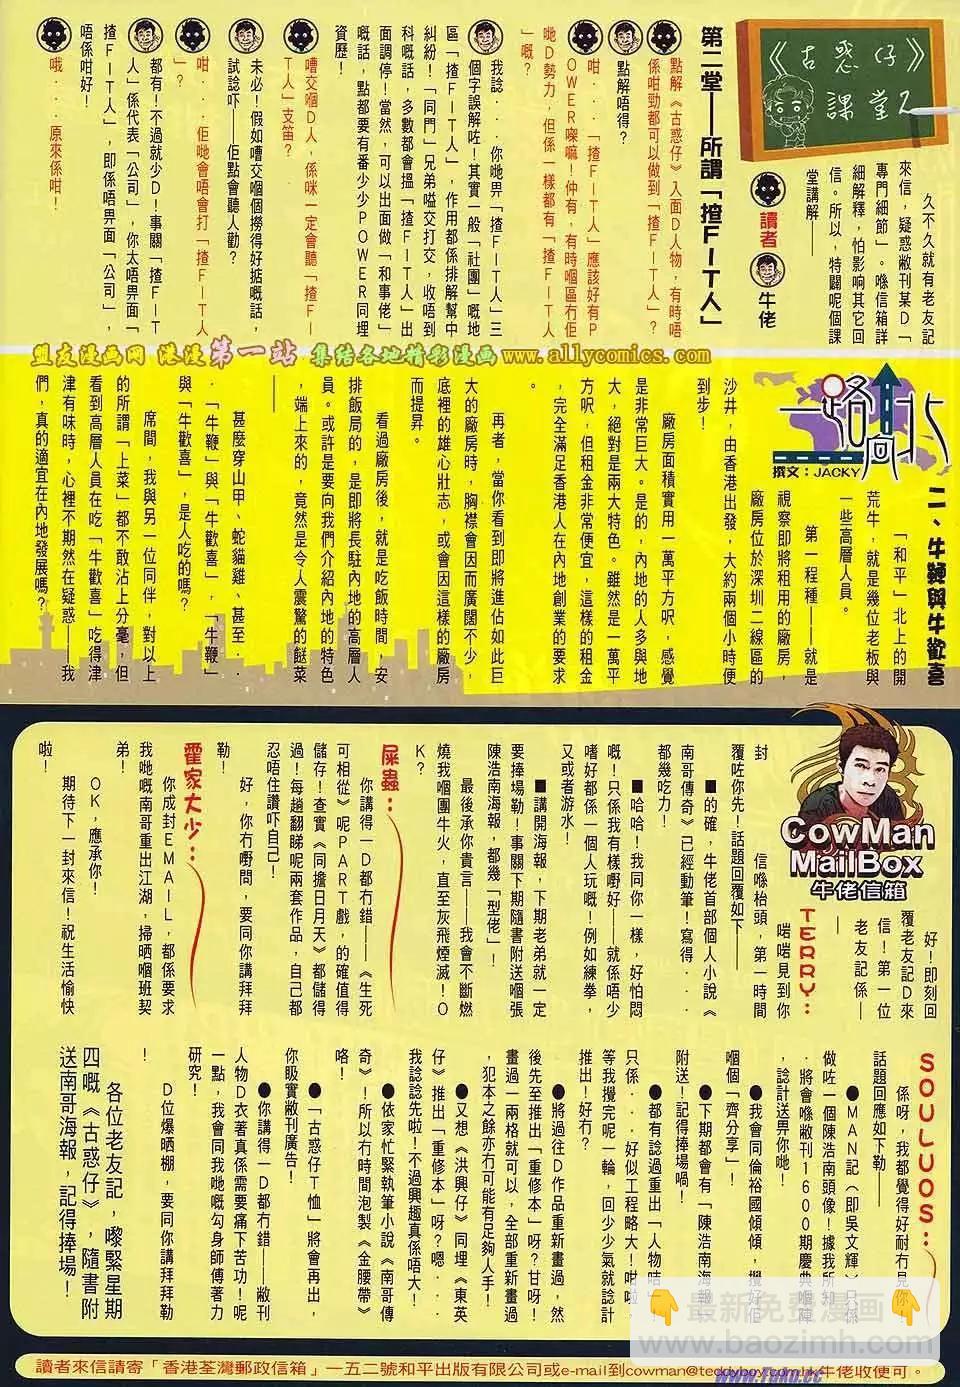 《古惑仔》
課堂2
久不久就有老友記
來信，疑惑敝刊某D「
專門細節」。喺信箱詳
細解釋，怕影响其它回
信。所以，特闢呢個課
堂講解——
讀者
牛佬
第二堂——所謂「揸FIT人」
點解《古惑仔》入面D人物，有時唔
係咁勁都可以做到「揸FIT人」？
點解唔得？
咁．．．「揸FIT人」應該好有P
OWER㗎嘛！仲有，有時嗰區冇佢
哋D勢力，但係一樣都有「揸FIT人
」嘅？
我諗．．．你哋畀「揸FIT人」三
個字誤解咗！其實一般「社團」嘅地
區「揸FIT人」，作用都係排解幫中
糾紛！「同門」兄弟嗌交打交，收唔到
科嘅話，多數都會搵「揸FIT人」出
面調停！當然，可以出面做「和事佬」
嘅話，點都要有番少少POWER同埋
資歷！
嘈交嗰D人，係咪一定會聽「揸FI
T人」支笛？
未必！假如嘈交嗰個撈得好掂嘅話，
試諗吓——佢點會聽人勸？
咁．．．佢哋會唔會打「揸FIT人
」？
都有！不過就少D！事關「揸FIT
人」係代表「公司」，你太唔畀面「
揸FIT人」，即係唔畀面「公司」，
唔係咁好！
哦．．．原來係咁！
盟友漫画网 港漫第一站 集结各地精彩漫画 www.allycomics.com
一路向北
撰文：JACKY
二、牛鞭與牛歡喜
「和平」北上的開
荒牛，就是幾位老板與
一些高層人員。
第一程種——就是
視察即將租用的廠房，
廠房位於深圳二線區的
沙井，由香港出發，大約兩個小時便
到步！
廠房面積實用一萬平方呎，感覺
是非常巨大。是的，內地的人多與地
大，絕對是兩大特色。雖然是一萬平
方呎，但租金非常便宜，這樣的租金
，完全滿足香港人在內地創業的要求
。
再者，當你看到即將進佔如此巨
大的廠房時，胸襟會因而廣闊不少，
底裡的雄心壯志，或會因這樣的廠房
而提昇。
看過廠房後，就是吃飯時間，安
排飯局的，是即將長駐內地的高層人
員。或許是要向我們介紹內地的特色
，端上來的，竟然是令人震驚的餸菜
——
甚麼穿山甲、蛇貓雞、甚至．
．「牛鞭」與「牛歡喜」，「牛鞭」
與「牛歡喜」，是人吃的嗎？
席間，我與另一位同伴，對以上
的所謂「上菜」都不敢沾上分毫，但
看到高層人員在吃「牛歡喜」吃得津
津有味時，心裡不期然在疑惑——我
們，真的適宜在內地發展嗎？
CowMan
MailBox
牛佬信箱
好！即刻回
覆老友記D來
信！第一位
老友記係—
—
TERRY：
啱啱見到你
信喺枱頭，第一時間
封
覆咗你先！話題回覆如下——
■的確，牛佬首部個人小說《
南哥傳奇》已經動筆！寫得．．
都幾吃力！
■哈哈！我同你一樣，好怕悶
嘅！只係我有樣嘢好——就係唔少
嗜好都係一個人玩嘅！例如練拳，
又或者游水！
■講開海報，下期老弟就一定
要捧場勒！事關下期隨書附送嗰張
陳浩南海報，都幾「型佬」！
最後承你貴言——我會不斷燃
燒我嗰團牛火，直至灰飛煙滅！O
K？
屎蟲：
你講得一D都冇錯——《生死
可相從》呢PART戲，的確值得
儲存！查實《同擔日月天》都儲得
過！每趟翻睇呢兩套作品，自己都
忍唔住讚吓自己！
好，你冇嘢問，要同你講拜拜
勒！
霍家大少：
你成封EMAIL，都係要求
我哋嘅南哥重出江湖，掃晒嗰班契
弟！
OK，應承你！
期待下一封來信！祝生活愉快
啦！
SOULUOS：
係呀，我都覺得好耐冇見你
話題回應如下勒——
●MAN記（即吳文輝）只係
做咗一個陳浩南頭像！據我所知
．將會喺敝刊1600期慶典嗰陣
，諗計送畀你哋！
●我會同倫裕國傾傾，攪好佢
嗰個「齊分享」！
●下期都會有「陳浩南海報」
附送！記得捧場喎！
●都有諗過重出「人物咭」！
只係．．．好似工程略大！咁啦
等我攪完呢一輪，回少少氣就諗計
推出！好冇？
●將過往D作品重新畫過，然
後先至推出「重修本」呀？甘呀！
畫過一兩格就可以，全部重新畫過
，犯本之餘亦冇可能有足夠人手！
●又想《洪興仔》同埋《東英
仔》推出「重修本」呀？嗯．．
我諗諗先啦！不過興趣真係唔大！
●依家忙緊執筆小說《南哥傳
奇》！所以冇時間泡製《金腰帶》
咯！
●「古惑仔T恤」將會再出，
你吸實敝刊廣告！
●你講得一D都冇錯——敝刊
人物D衣著真係需要痛下苦功！呢
一點，我會同我哋嘅勾身師傅著力
研究！
D位爆晒棚，要同你講拜拜勒
！
各位老友記，嚟緊星期
四嘅《古惑仔》，隨書附
送南哥海報，記得捧場！
最新免费漫画
www.baozimh.com
讀者來信請寄「香港荃灣郵政信箱」一五二號和平出版有限公司或e-mail到cowman@teddyboy.com.hk牛佬收便可。
www.Yuku.cc